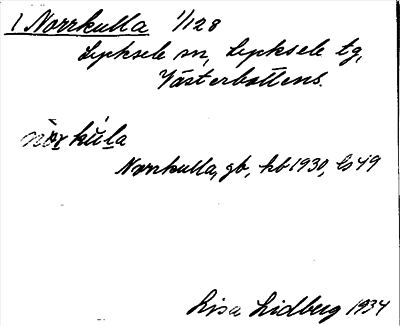 1 Norrkulla 1/128
Lycksele sn, Lycksele tg,
Västerbottens.
nòrkúla
Norrkulla, gb, kb 1930, ls 49
Lisa Lidberg 1934